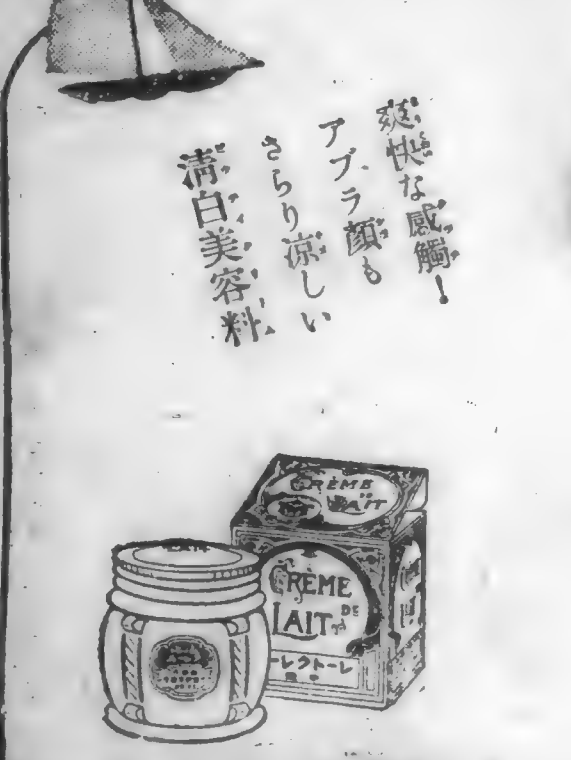 爽快な感觸！
アブラ顔も
さらり涼しい
清白美容料
CRÈME
DE
LAIT
CRÈME
DE
LAIT
ーレクトーレ